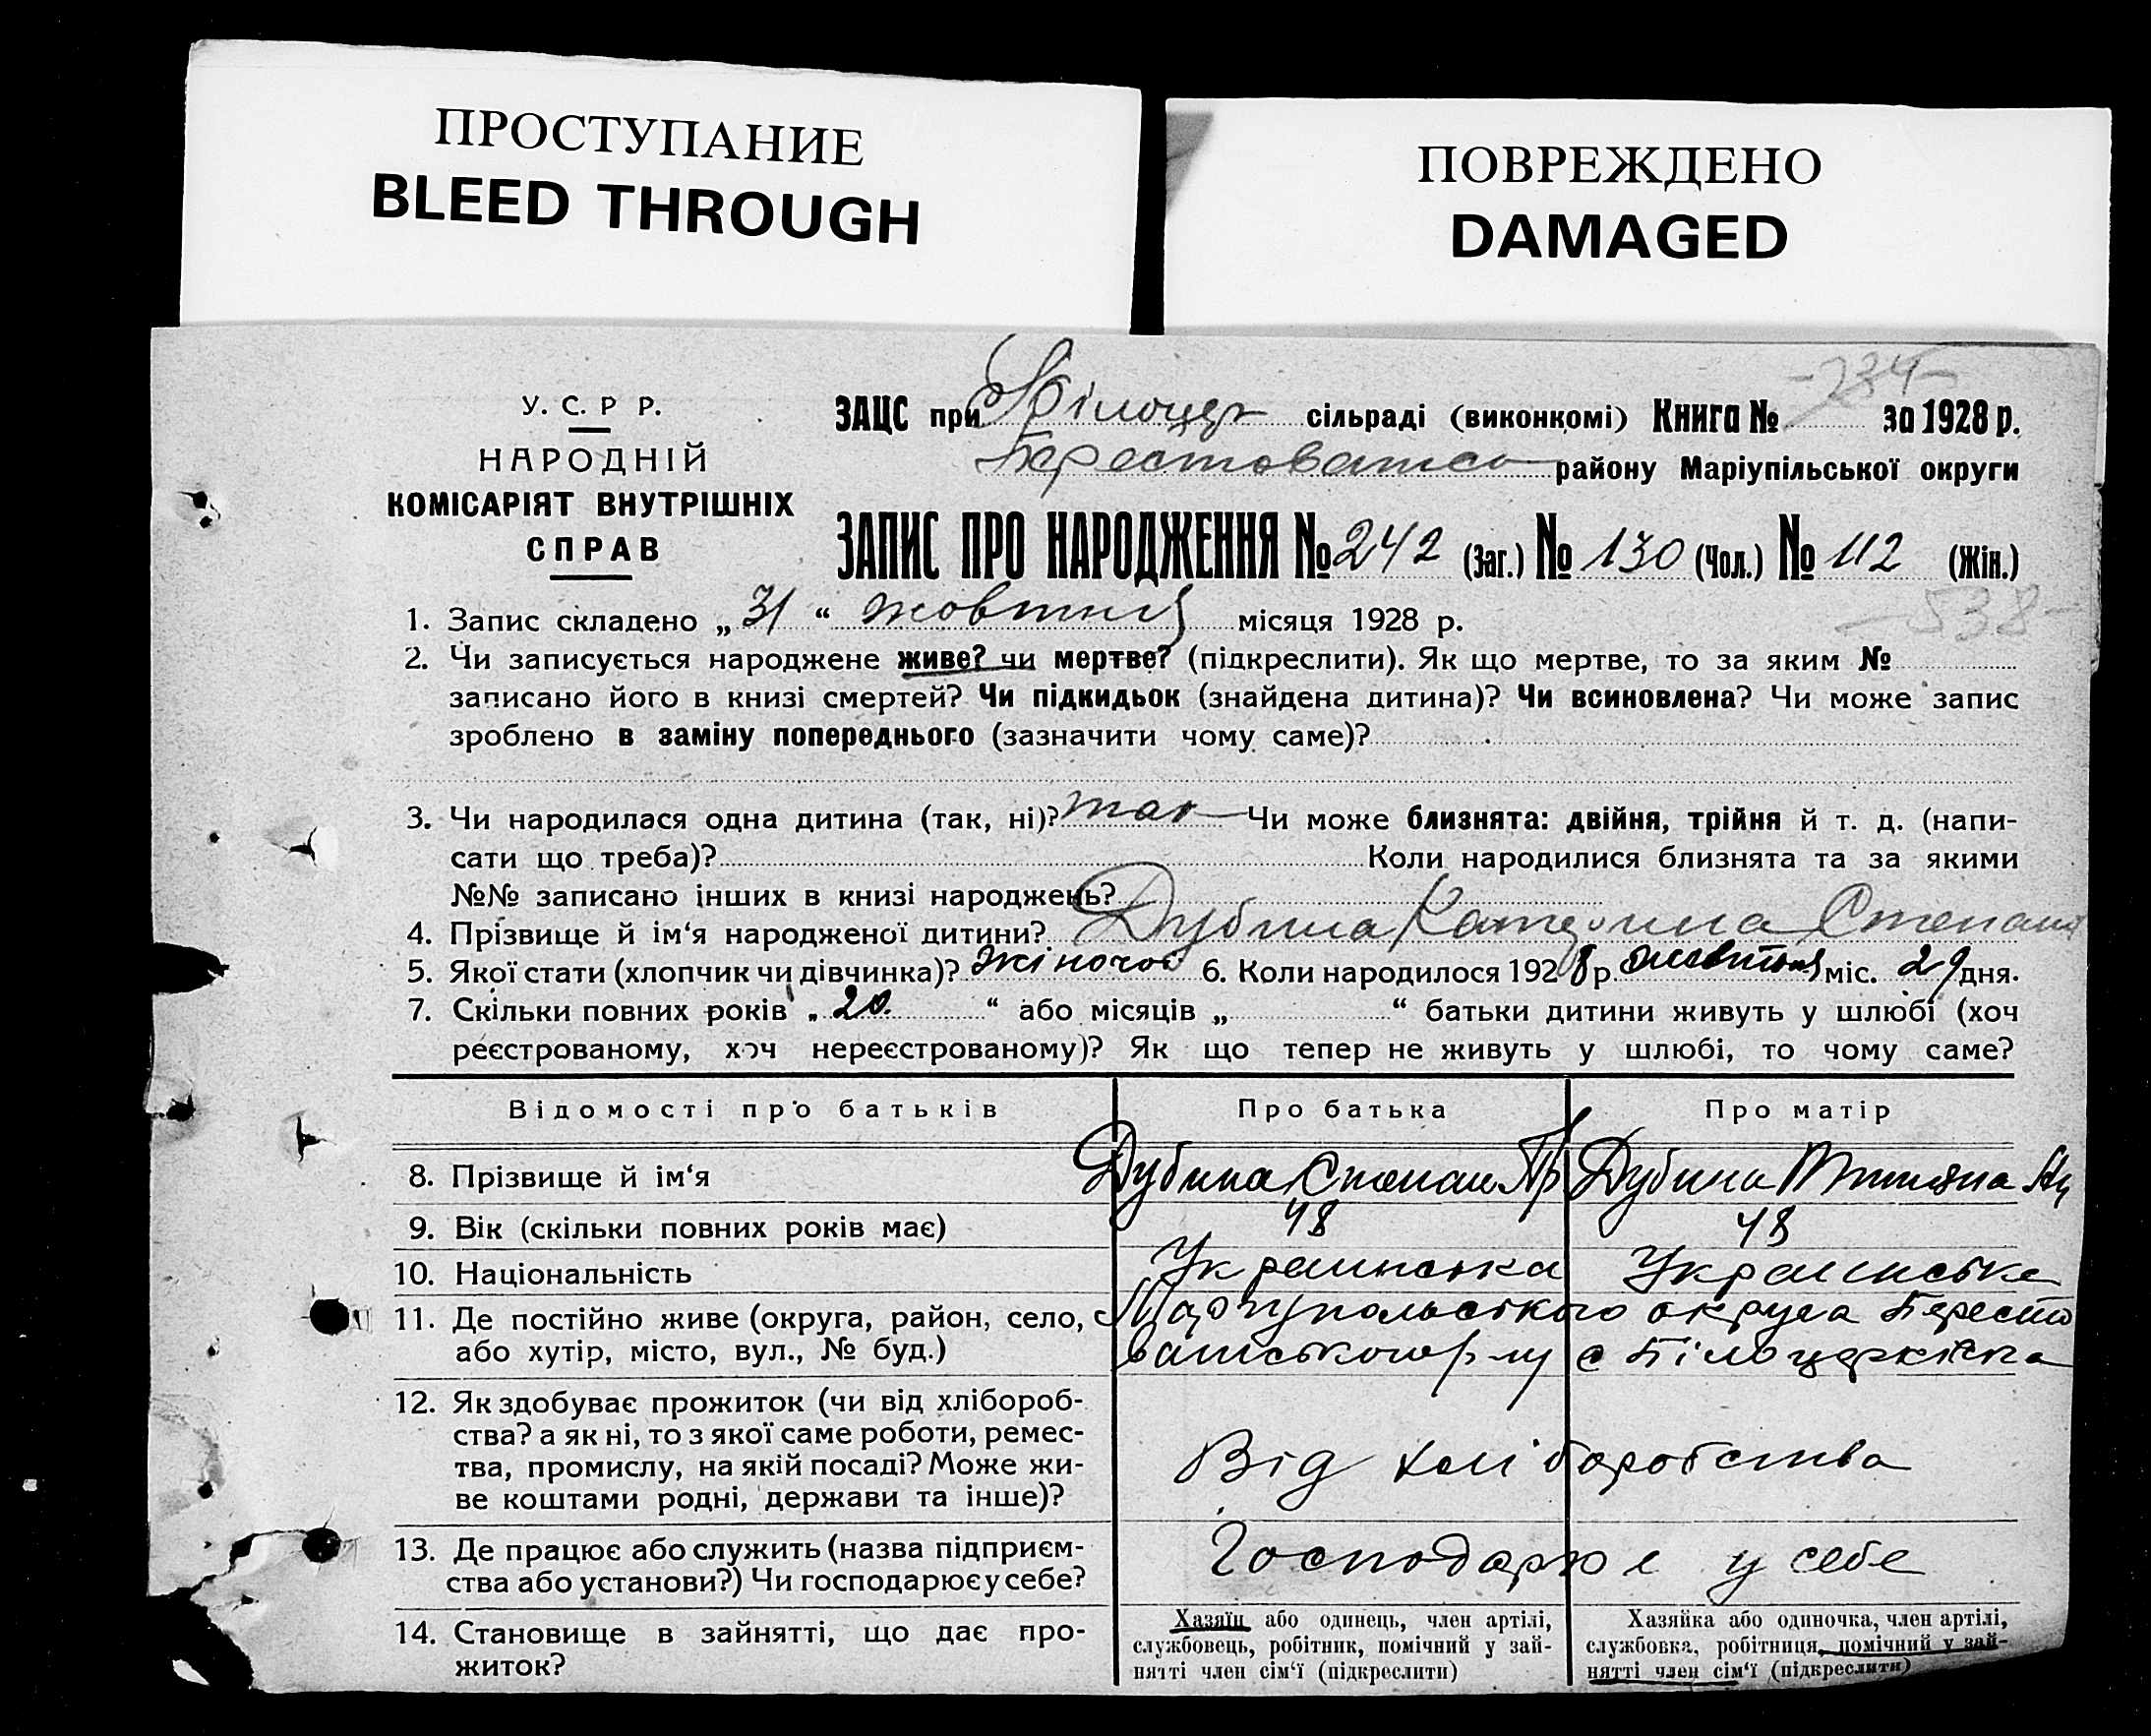 ПРОСТУПАНИЕ
BLEED THROUGH
ПОВРЕЖДЕНО
DAMAGED
-234-
У. С. Р Р.
НАРОДНІЙ
КОМІСАРІЯТ ВНУТРІШНІХ
СПРАВ
ЗАЦС при Білоцер сільраді (виконкомі) Книга № за 1928 р.
Берестоватсь району Маріупільської округи
ЗАПИС ПРО НАРОДЖЕННЯ № 242 (Заг.) № 130 (Чол.) № 112 (Жін.)
-538-
1. Запис складено „ 31 “ жовтня місяця 1928 р.
2. Чи записується народжене живе? чи мертве? (підкреслити). Як що мертве, то за яким №
записано його в книзі смертей? Чи підкидьок (знайдена дитина)? Чи всиновлена? Чи може запис
зроблено в заміну попереднього (зазначити чому саме)?
3. Чи народилася одна дитина (так, ні)? так Чи може близнята: двійня, трійня й т. д. (напи-
сати що треба)? Коли народилися близнята та за якими
№№ записано інших в книзі народжень?
4. Прізвище й ім‘я народженої дитини? Дубина Катерина Степан
5. Якої стати (хлопчик чи дівчинка)? жіночої 6. Коли народилося 1928 р. жовтня міс. 29 дня.
7. Скільки повних років „ 20. “ або місяців „ “ батьки дитини живуть у шлюбі (хоч
реєстрованому, хоч нереєстрованому)? Як що тепер не живуть у шлюбі, то чому саме?
Відомості про батьків Про батька Про матір
8. Прізвище й ім‘я Дубина Степан Пр Дубина Титяна
9. Вік (скільки повних років має) 48 48
10. Національність Украинська Украинська
11. Де постійно живе (округа, район, село, Маріупольського округа Бересто
або хутір, місто, вул., № буд.) ватського р-ну с Білоцерківка
12. Як здобуває прожиток (чи від хлібороб-
ства? а як ні, то з якої саме роботи, ремес-
тва, промислу, на якій посаді? Може жи- Від хліборобства
ве коштами родні, держави та інше)?
13. Де працює або служить (назва підприєм- Господарює у себе
ства або установи?) Чи господарює у себе?
14. Становище в зайнятті, що дає про-
житок?
Хазяїн або одинець, член артілі,
службовець, робітник, помічний у зай-
нятті член сім‘ї (підкреслити)
Хазяйка або одиночка, член артілі,
службовка, робітниця, помічний у зай-
нятті член сім‘ї (підкреслити)